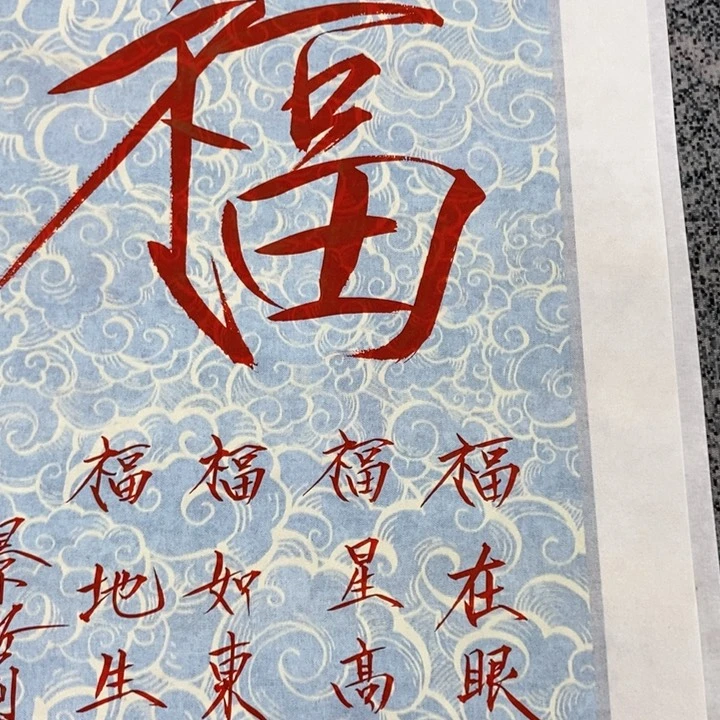 福
福在眼
福星高
福如東
福地生